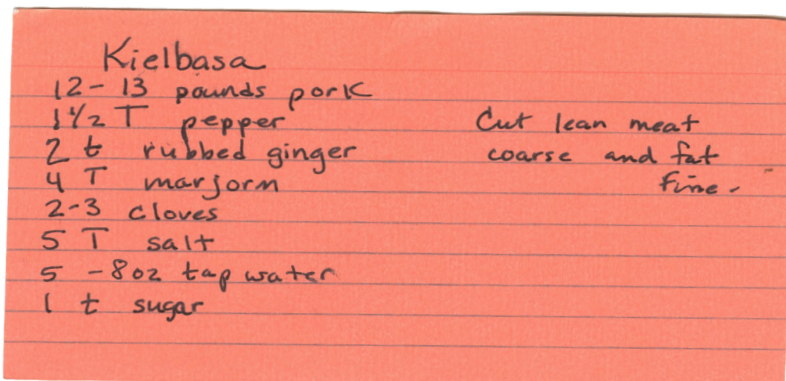 Kielbasa
12-13 pounds pork
1 1/2 T pepper
2 t rubbed ginger
4 T marjorm
2-3 cloves
5 T salt
5 -8oz tap water
1 t sugar
Cut lean meat
coarse and fat
fine.